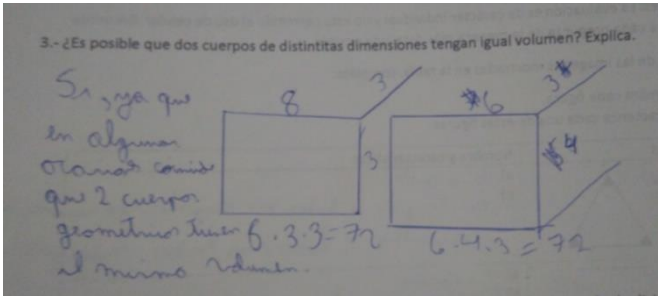 3.- ¿Es posible que dos cuerpos de distintitas dimensiones tengan igual volumen? Explica.
Si, ya que
en algunas
ocasiones
que 2 cuerpos
geometricos tienen
el mismo volumen.
8
3
3
6 . 3 . 3 = 72
6
3
4
6 . 4 . 3 = 72